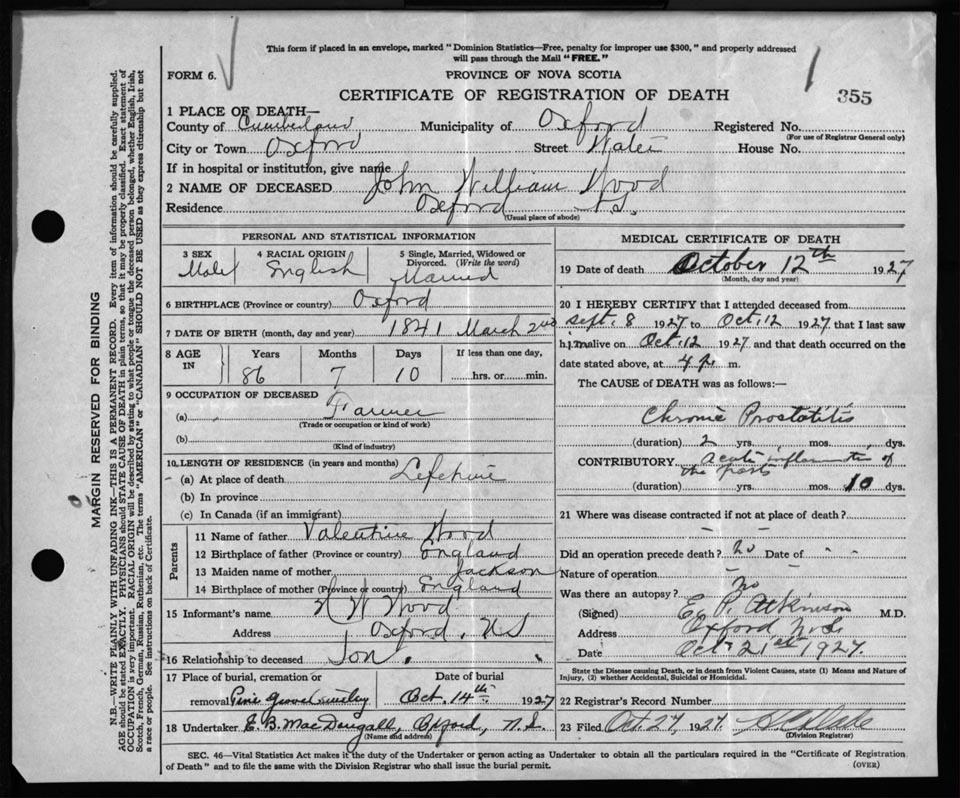 This form if placed in an envelope, marked "Dominion Statistics—Free, penalty for improper use $300," and properly addressed
will pass through the Mail "FREE."
FORM 6.
PROVINCE OF NOVA SCOTIA
CERTIFICATE OF REGISTRATION OF DEATH
355
1 PLACE OF DEATH—
County of Cumberland, Municipality of Oxford Registered No.
(For use of Registrar General only)
City or Town Oxford Street Water House No.
If in hospital or institution, give name
2 NAME OF DECEASED John William Wood
Residence Oxford N.S.
(Usual place of abode)
PERSONAL AND STATISTICAL INFORMATION
3 SEX 4 RACIAL ORIGIN 5 Single, Married, Widowed or
Divorced. (Write the word)
Male English Married
6 BIRTHPLACE (Province or country) Oxford
7 DATE OF BIRTH (month, day and year) 1841 March 2nd
8 AGE IN Years Months Days If less than one day,
86 7 10 hrs. or min.
9 OCCUPATION OF DECEASED
(a) Farmer
(Trade or occupation or kind of work)
(b)
(Kind of industry)
10 LENGTH OF RESIDENCE (in years and months)
(a) At place of death Lifetime
(b) In province
(c) In Canada (if an immigrant)
Parents
11 Name of father Valentine Wood
12 Birthplace of father (Province or country) England
13 Maiden name of mother Jackson
14 Birthplace of mother (Province or country) England
15 Informant's name W Wood
Address Oxford, N S
16 Relationship to deceased Son.
17 Place of burial, cremation or Date of burial
removal Pine Grove Cemetery Oct. 14th 1927
18 Undertaker E. B. MacDougall, Oxford, N. S.
(Name and address)
MEDICAL CERTIFICATE OF DEATH
19 Date of death October 12th 1927
(Month, day and year)
20 I HEREBY CERTIFY that I attended deceased from
Sept. 8 1927 to Oct. 12 1927 that I last saw
him alive on Oct. 12 1927 and that death occurred on the
date stated above, at 4 p. m.
The CAUSE OF DEATH was as follows:—
Chronic Prostatitis
(duration) 2 yrs. mos. dys.
CONTRIBUTORY Acute inflammation of
the parts
(duration) yrs. mos. 10 dys.
21 Where was disease contracted if not at place of death?
Did an operation precede death? no Date of " "
Nature of operation
Was there an autopsy? No
(Signed) E. P. Atkinson M.D.
Address Oxford N.S.
Date Oct. 21st 1927.
State the Disease causing Death, or in death from Violent Causes, state (1) Means and Nature of
Injury, (2) whether Accidental, Suicidal or Homicidal.
22 Registrar's Record Number
23 Filed Oct 27, 1927
(Division Registrar)
SEC. 46—Vital Statistics Act makes it the duty of the Undertaker or person acting as Undertaker to obtain all the particulars required in the "Certificate of Registration
of Death" and to file the same with the Division Registrar who shall issue the burial permit.
(OVER)
MARGIN RESERVED FOR BINDING
N.B.—WRITE PLAINLY WITH UNFADING INK—THIS IS A PERMANENT RECORD. Every item of information should be carefully supplied.
AGE should be stated EXACTLY. PHYSICIANS should STATE CAUSE OF DEATH in plain terms, so that it may be properly classified. Exact statement of
OCCUPATION is very important. RACIAL ORIGIN will be described by stating to what people or tongue the deceased person belonged, whether English, Irish,
Scotch, French, German, Russian, Ruthenian, etc. The terms "AMERICAN" or "CANADIAN" SHOULD NOT BE USED as they express citizenship but not
a race or people. See instructions on back of Certificate.